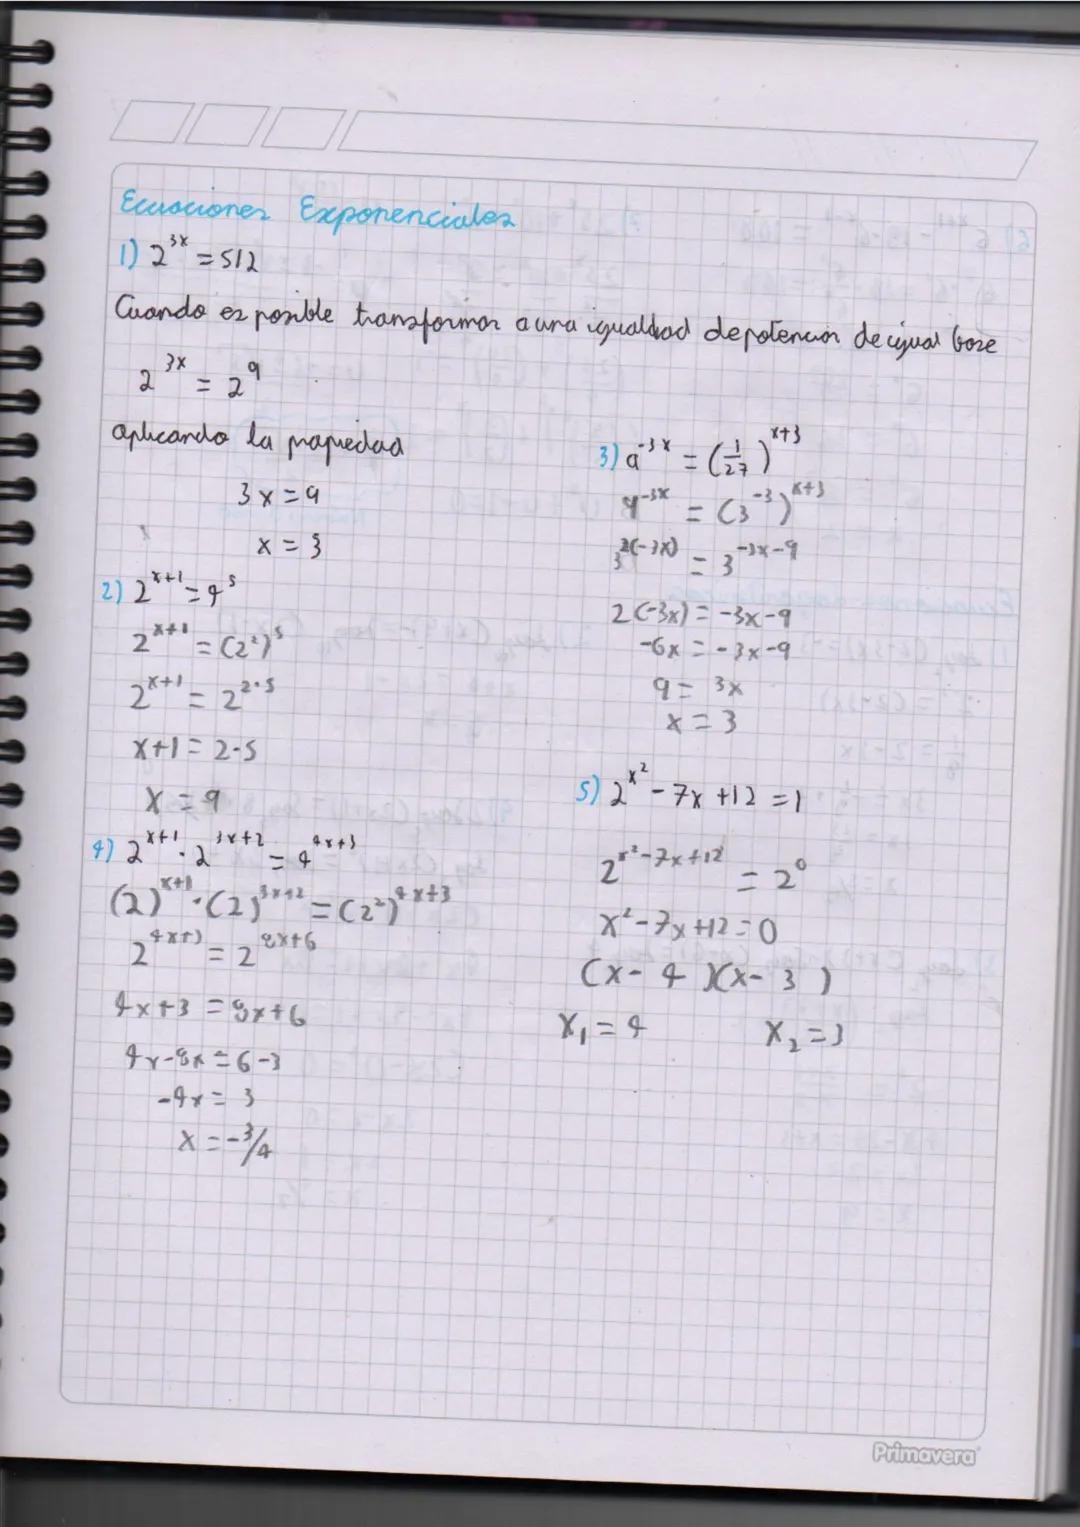 Ecuaciones Exponenciales
1) 2^{3x} = 512
Cuando es posible transformar a una igualdad de potencias de igual base
2^{3x} = 2^9
aplicando la propiedad
3x = 9
x = 3
2) 2^{x+1} = 4^5
2^{x+1} = (2^2)^5
2^{x+1} = 2^{2·5}
x+1 = 2·5
x = 9
4) 2^{x+1} · 2^{3x+2} = 4^{4x+3}
(2)^{x+1} · (2)^{3x+2} = (2^2)^{4x+3}
2^{4x+3} = 2^{8x+6}
4x+3 = 8x+6
4x-8x = 6-3
-4x = 3
x = -3/4
3) 9^{-3x} = (1/27)^{x+3}
9^{-3x} = (3^{-3})^{x+3}
3^{2(-3x)} = 3^{-3x-9}
2(-3x) = -3x-9
-6x = -3x-9
9 = 3x
x = 3
5) 2^{x^2} - 7x + 12 = 1
2^{x^2-7x+12} = 2^0
x^2-7x+12 = 0
(x- 4 )(x- 3 )
x_1 = 4 x_2 = 3
Primavera